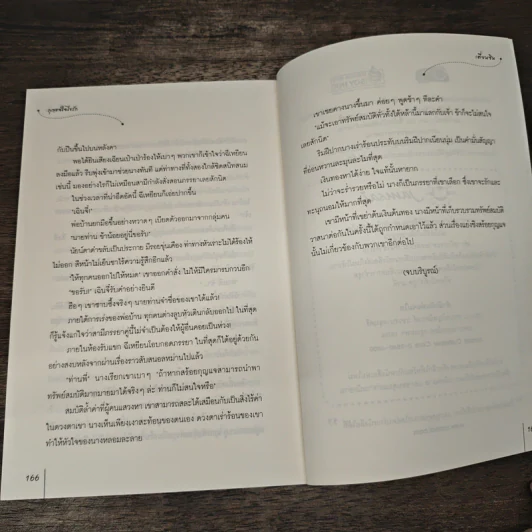 กับปีนขึ้นไปบนหลังคา
พอได้ยินเสียงเฉียนเป่าเป่าร้องให้เบาๆ พวกเขาก็เข้าใจว่าฉีเหยียน
ลงมือแล้ว รีบพุ่งเข้ามาช่วยนางทันที แต่ท่าทางที่ทั้งสองใกล้ชิดสนิทสนม
เช่นนี้ มองอย่างไรก็ไม่เหมือนสามีกำลังสั่งสอนภรรยาเลยสักนิด
ในช่วงเวลาที่น่าอึดอัดนี้ ฉีเหยียนก็เอ่ยปากขึ้น
"เฉินจี๋"
พ่อบ้านยกมือขึ้นอย่างหวาดๆ เบียดตัวออกมาจากกลุ่มคน
"นายท่าน ข้าน้อยอยู่นี่ขอรับ"
นัยน์ตาดำขลับเป็นประกาย มีรอยขุ่นเคือง ท่าทางหัวเราะไม่ได้ร้องไห้
ไม่ออก สีหน้าไม่เย็นชาไร้ความรู้สึกอีกแล้ว
"ให้ทุกคนออกไปให้หมด" เขาออกคำสั่ง ไม่ให้มีใครมารบกวนอีก
"ขอรับ" เฉินจี๋รับคำอย่างยินดี
ฮือๆ เขาซาบซึ้งจริงๆ นายท่านจำชื่อของเขาได้แล้ว!
ภายใต้การเร่งของพ่อบ้าน ทุกคนต่างลูบหัวเดินกลับออกไป ในที่สุด
ก็รู้แจ้งแก่ใจว่าสามีภรรยาคู่นี้ไม่จำเป็นต้องให้ผู้อื่นคอยเป็นห่วง
ภายในห้องรับแขก ฉีเหยียนโอบกอดภรรยา ในที่สุดก็ได้อยู่ด้วยกัน
อย่างสงบหลังจากผ่านเรื่องราวสับสนอลหม่านไปแล้ว
"ท่านพี่" นางเรียกเขาเบาๆ "ถ้าหากสร้อยกุญแจสามารถนำพา
ทรัพย์สมบัติมากมายมาได้จริงๆ ล่ะ ท่านก็ไม่สนใจหรือ"
สมบัติล้ำค่าที่ผู้คนแสวงหา เขาสามารถสละได้เสมือนกับเป็นสิ่งไร้ค่า
ในดวงตาเขา นางเห็นเพียงเงาสะท้อนของตนเอง ดวงตาเร่าร้อนของเขา
ทำให้หัวใจของนางหลอมละลาย
166
เขาเชยคางนางขึ้นมา ค่อยๆ พูดช้าๆ ทีละคำ
"แม้จะเอาทรัพย์สมบัติทั่วทั้งใต้หล้านี้มาแลกกับเจ้า ข้าก็จะไม่สนใจ
เลยสักนิด"
ริมฝีปากบางเร่าร้อนประทับบนริมฝีปากเนียนนุ่ม เป็นคำมั่นสัญญา
ที่อ่อนหวานละมุนละไมที่สุด
เงินทองหาได้ง่าย ใจแท้นั้นหายาก
ไม่ว่าจะร่ำรวยหรือไม่ นางก็เป็นภรรยาที่เขาเลือก ซึ่งเขาจะรักและ
ทะนุถนอมให้มากที่สุด
เขามีหน้าที่เขย่าต้นเงินต้นทอง นางมีหน้าที่เก็บรวบรวมทรัพย์สมบัติ
วาสนาต่อกันในครั้งนี้ได้ถูกกำหนดเอาไว้แล้ว ส่วนเรื่องแย่งชิงสร้อยกุญแจ
นั้นไม่เกี่ยวข้องกับพวกเขาอีกต่อไป
(จบบริบูรณ์)